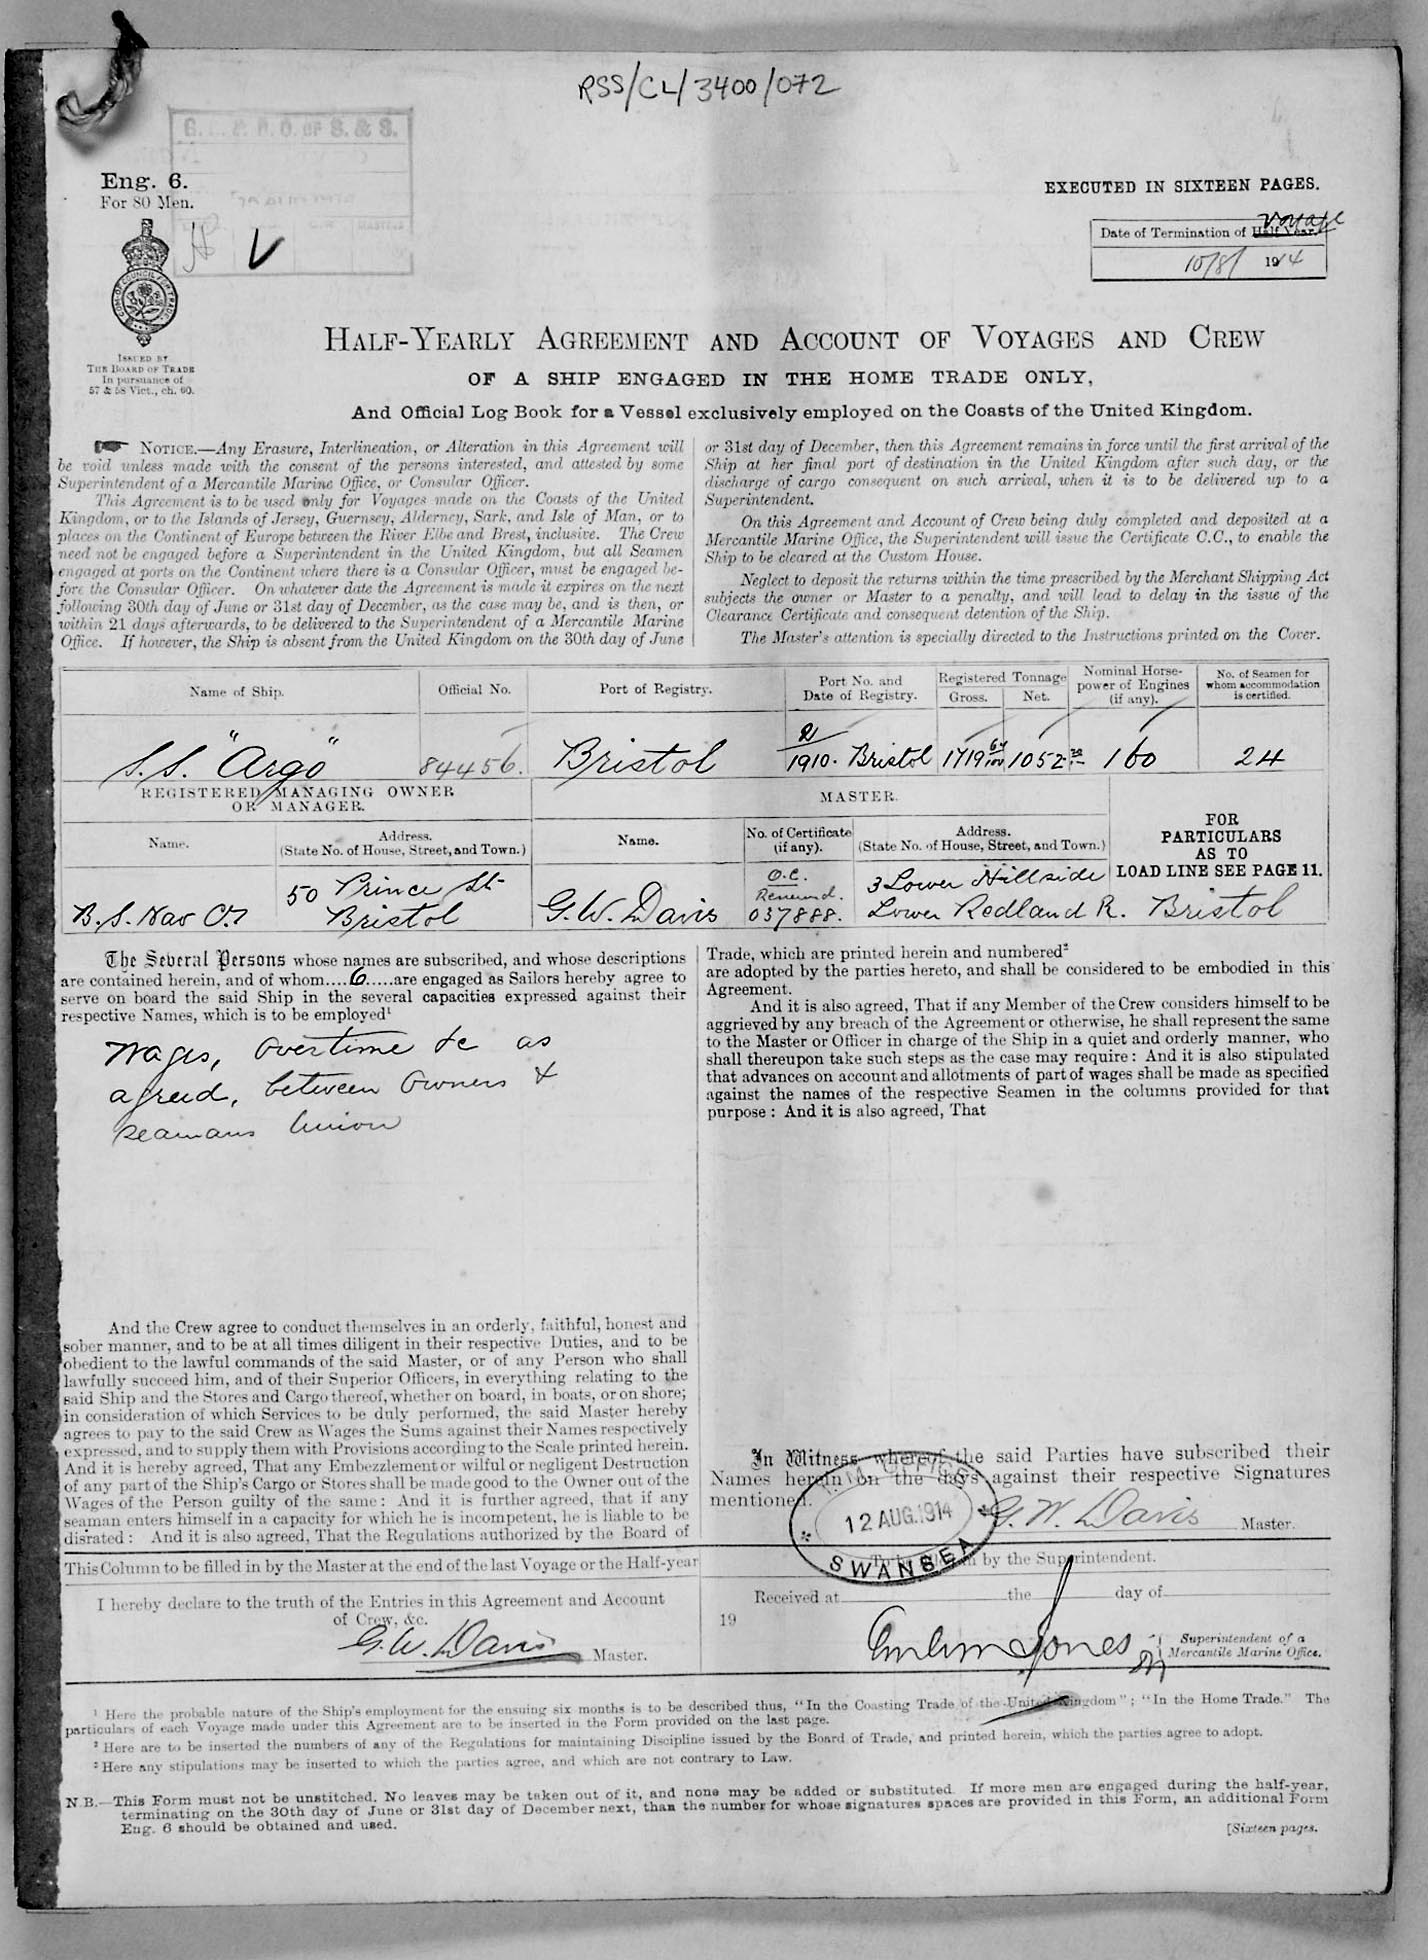 RSS/CL/3400/072
Eng. 6.
For 80 Men.
V
ISSUED BY
THE BOARD OF TRADE
In pursuance of
57 & 58 Vict., ch. 60.
EXECUTED IN SIXTEEN PAGES.
voyage
Date of Termination of Half Year.
10/8/ 1914
HALF-YEARLY AGREEMENT AND ACCOUNT OF VOYAGES AND CREW
OF A SHIP ENGAGED IN THE HOME TRADE ONLY,
And Official Log Book for a Vessel exclusively employed on the Coasts of the United Kingdom.
NOTICE.—Any Erasure, Interlineation, or Alteration in this Agreement will
be void unless made with the consent of the persons interested, and attested by some
Superintendent of a Mercantile Marine Office, or Consular Officer.
This Agreement is to be used only for Voyages made on the Coasts of the United
Kingdom, or to the Islands of Jersey, Guernsey, Alderney, Sark, and Isle of Man, or to
places on the Continent of Europe between the River Elbe and Brest, inclusive. The Crew
need not be engaged before a Superintendent in the United Kingdom, but all Seamen
engaged at ports on the Continent where there is a Consular Officer, must be engaged be-
fore the Consular Officer. On whatever date the Agreement is made it expires on the next
following 30th day of June or 31st day of December, as the case may be, and is then, or
within 21 days afterwards, to be delivered to the Superintendent of a Mercantile Marine
Office. If however, the Ship is absent from the United Kingdom on the 30th day of June
or 31st day of December, then this Agreement remains in force until the first arrival of the
Ship at her final port of destination in the United Kingdom after such day, or the
discharge of cargo consequent on such arrival, when it is to be delivered up to a
Superintendent.
On this Agreement and Account of Crew being duly completed and deposited at a
Mercantile Marine Office, the Superintendent will issue the Certificate C.C., to enable the
Ship to be cleared at the Custom House.
Neglect to deposit the returns within the time prescribed by the Merchant Shipping Act
subjects the owner or Master to a penalty, and will lead to delay in the issue of the
Clearance Certificate and consequent detention of the Ship.
The Master's attention is specially directed to the Instructions printed on the Cover.
Name of Ship.
Official No.
Port of Registry.
Port No. and
Date of Registry.
Registered Tonnage
Gross.
Net.
Nominal Horse-
power of Engines
(if any).
No. of Seamen for
whom accommodation
is certified.
S.S. "Argo"
84456.
Bristol
2/1910. Bristol
1719 64/100
1052
160
24
REGISTERED MANAGING OWNER
OR MANAGER.
MASTER.
Name.
Address.
(State No. of House, Street, and Town.)
Name.
No. of Certificate
(if any).
Address.
(State No. of House, Street, and Town.)
FOR
PARTICULARS
AS TO
LOAD LINE SEE PAGE 11.
B. S. Nav Co.
50 Prince St
Bristol
G. W. Davis
O.C.
Renewd.
037888.
3 Lower Hillside
Lower Redland R. Bristol
The Several Persons whose names are subscribed, and whose descriptions
are contained herein, and of whom....6.....are engaged as Sailors hereby agree to
serve on board the said Ship in the several capacities expressed against their
respective Names, which is to be employed¹
Wages, overtime &c as
agreed, between Owners &
seamans Union
And the Crew agree to conduct themselves in an orderly, faithful, honest and
sober manner, and to be at all times diligent in their respective Duties, and to be
obedient to the lawful commands of the said Master, or of any Person who shall
lawfully succeed him, and of their Superior Officers, in everything relating to the
said Ship and the Stores and Cargo thereof, whether on board, in boats, or on shore;
in consideration of which Services to be duly performed, the said Master hereby
agrees to pay to the said Crew as Wages the Sums against their Names respectively
expressed, and to supply them with Provisions according to the Scale printed herein.
And it is hereby agreed, That any Embezzlement or wilful or negligent Destruction
of any part of the Ship's Cargo or Stores shall be made good to the Owner out of the
Wages of the Person guilty of the same: And it is further agreed, that if any
seaman enters himself in a capacity for which he is incompetent, he is liable to be
disrated: And it is also agreed, That the Regulations authorized by the Board of
Trade, which are printed herein and numbered²
are adopted by the parties hereto, and shall be considered to be embodied in this
Agreement.
And it is also agreed, That if any Member of the Crew considers himself to be
aggrieved by any breach of the Agreement or otherwise, he shall represent the same
to the Master or Officer in charge of the Ship in a quiet and orderly manner, who
shall thereupon take such steps as the case may require: And it is also stipulated
that advances on account and allotments of part of wages shall be made as specified
against the names of the respective Seamen in the columns provided for that
purpose: And it is also agreed, That
In Witness whereof the said Parties have subscribed their
Names herein on the days against their respective Signatures
mentioned.
G. W. Davis Master.
OFFICE
12 AUG. 1914
SWANSEA
This Column to be filled in by the Master at the end of the last Voyage or the Half-year
I hereby declare to the truth of the Entries in this Agreement and Account
of Crew, &c.
G. W. Davis Master.
by the Superintendent.
Received at the day of
19
Jones
Superintendent of a
Mercantile Marine Office.
¹ Here the probable nature of the Ship's employment for the ensuing six months is to be described thus, "In the Coasting Trade of the United Kingdom"; "In the Home Trade." The
particulars of each Voyage made under this Agreement are to be inserted in the Form provided on the last page.
² Here are to be inserted the numbers of any of the Regulations for maintaining Discipline issued by the Board of Trade, and printed herein, which the parties agree to adopt.
³ Here any stipulations may be inserted to which the parties agree, and which are not contrary to Law.
N.B.—This Form must not be unstitched. No leaves may be taken out of it, and none may be added or substituted. If more men are engaged during the half-year,
terminating on the 30th day of June or 31st day of December next, than the number for whose signatures spaces are provided in this Form, an additional Form
Eng. 6 should be obtained and used.
[Sixteen pages.